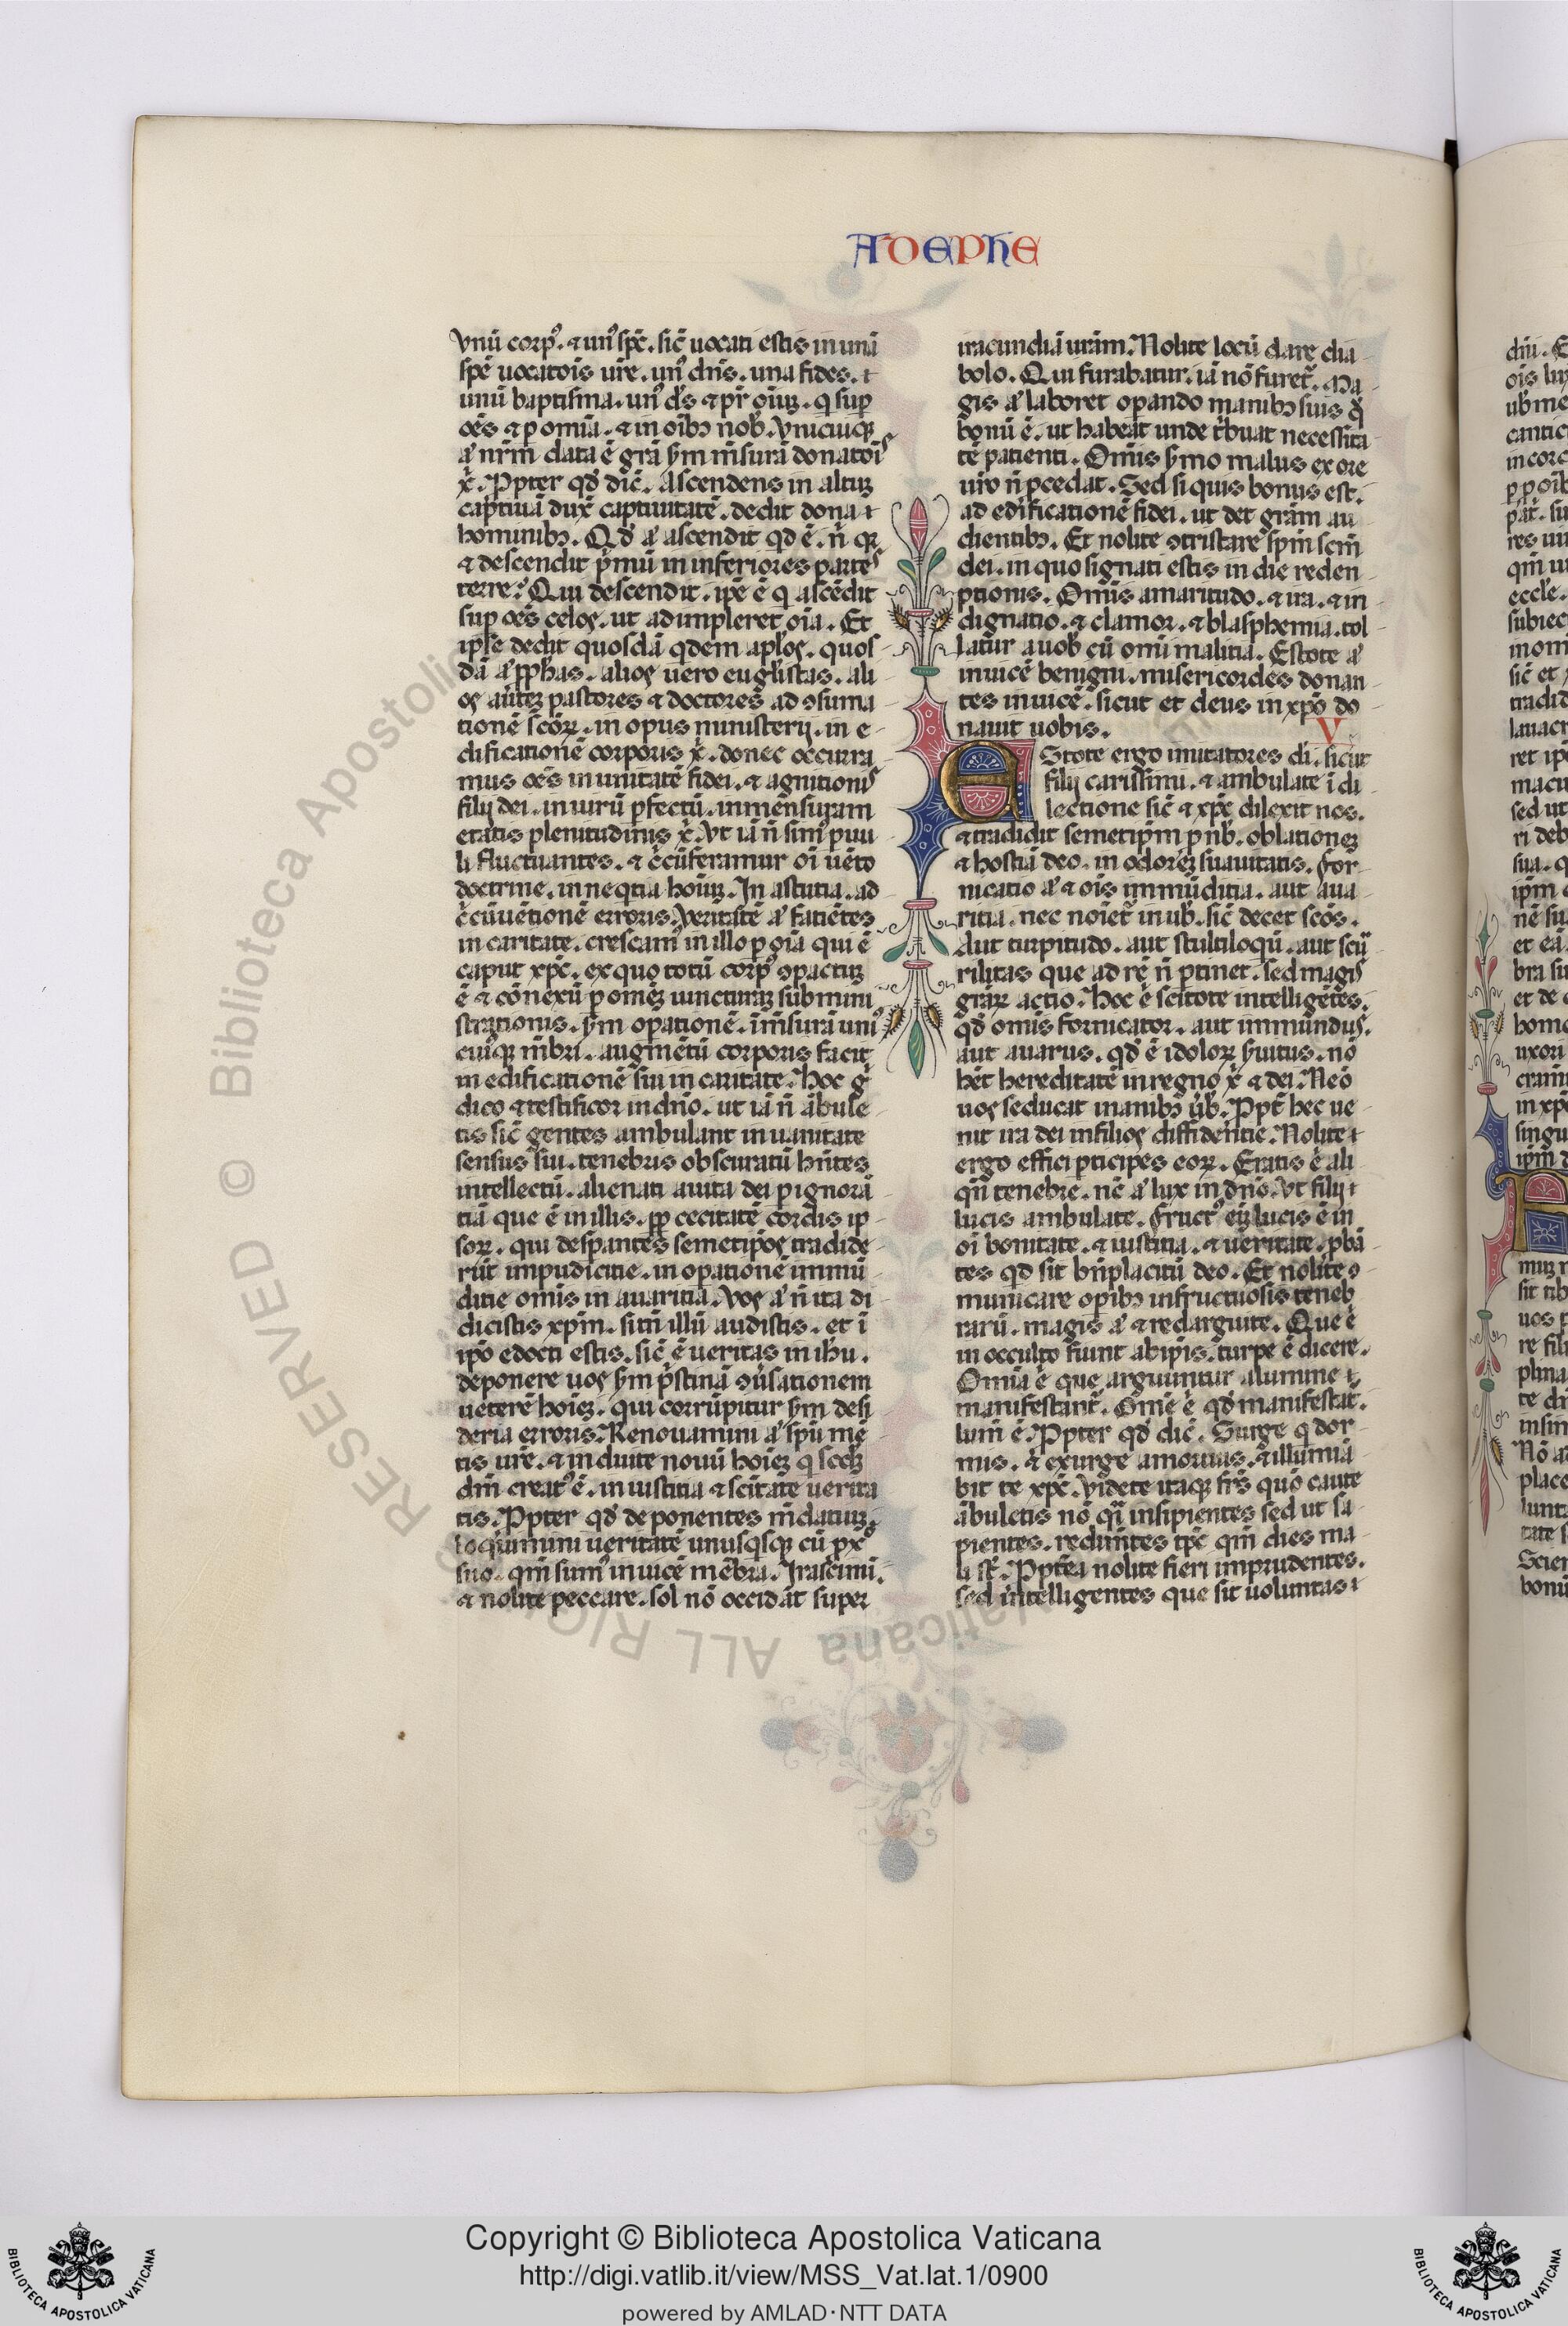 AD EPHE
vnū corp᷒. ⁊ un᷒ sp̄c. sic̄ uocati estis in unā
spē uocatōis ur̄e. un᷒ dn̄s. una fides.
unū baptisma. un᷒ ds̄ ⁊ pr̄ oīuꝫ. q̇ sup̄
oēs ⁊ ꝑ omīa. ⁊ in oībꝫ nob̄. Vnicuiqꝫ
a᷒ nr̄m data ē gr̄a s̄m m̄surā donatōis
x̄. Ꝓpter qd̄ dic̄. Ascendens in altuꝫ
captiuā dux̄ captiuitatē. dedit dona
hominibꝫ. Qd̄ a᷒ ascendit qd̄ ē. n̄ qꝛ
⁊ descendit p̄mū in inferiores partes
terre? Qui descendit. ip̄e ē q̇ ascēdit
sup̄ oēs celos. ut adimpleret oīa. Et
ipse dedit quosdā qdem apl̄os. quos
dā a᷒ ꝓph̄as. alios uero eugl̄istas. ali
os aūteꝫ pastores ⁊ doctores ad ꝯsuma
tionē sc̄oꝝ. in opus ministerij. in e
dificationē corporis x̄. donec occurra
mus oēs in unitatē fidei. ⁊ agnitionis
filij dei. in uirū ꝑfectū. in mēnsuram
etatis plenitudinis x̄. Vt iā n̄ sim᷒ puu
li fluctuantes. ⁊ c̄cūferamur oī uēto
doctrine. in neq̇tia hoīuꝫ. In astutia. ad
c̄cūuētionē erroris. Veritatē a᷒ faciētes
in caritate. crescam᷒ in illo ꝑ oīa qui ē
caput xp̄c. ex quo totū corp᷒ ꝯpactuꝫ
ē ⁊ cōnexū ꝑ omēꝫ iuncturaꝫ submini
strationis. s̄m oꝑationē. ī m̄surā uni᷒
cuiꝰqꝫ mb̄ri. augmētū corporis facit
in edificationē sui in caritate. Hoc g̊
dico ⁊ testificor in dn̄o. ut iā n̄ ābule
tis sic̄ gentes ambulant in uanitate
sensus sui. tenebris obscuratū hn̄tes
intellectū. alienati a uita dei ꝑ ignorā
tiā que ē in illis. ꝓp̄ cecitatē cordis ip
soꝝ. qui desꝑantes semetip̄os tradide
rūt impudicitie. in oꝑationē immū
ditie omīs in auaritiā. Vos a᷒ n̄ ita di
dicistis xp̄m. sitn̄ illū audistis. et ī
ip̄o edocti estis. sic̄ ē ueritas in ih̄u.
deponere uos s̄m p̄stinā ꝯūsationem
ueterē hoīeꝫ. qui corrūpitur s̄m desi
deria erroris. Renouamini a᷒ sp̄u mē
tis ur̄e. ⁊ induite nouū hoīeꝫ q̇ scd̄ꝫ
dm̄ creat᷒ ē. in iustitia ⁊ sc̄itate uerita
tis. Ꝓpter qd̄ deponentes m̄datiuꝫ.
loquimini ueritatē unusq̇sqꝫ cū px̄o
suo. qm̄ sum᷒ inuicē mēbra. Irascimi.
⁊ nolite peccare. sol nō occidāt super
iracundiā urām. Nolite locū dare dia
bolo. Qui furabatur. iā nō furet᷒. Ma
gis a᷒ laboret oꝑando manibꝫ suis qd̄
bonū ē. ut habeat unde tͥbuat necessita
tē patienti. Omīs s̄mo malus ex ore
uīo n̄ ꝓcedat. Sed si quis bonus est.
ad edificationē fidei. ut det grām au
dientibꝫ. Et nolite ꝯtristare sp̄m scm̄
dei. in quo signati estis in die reden
ptionis. Omīs amaritudo. ⁊ ira. ⁊ in
dignatio. ⁊ clamor. ⁊ blasphemia. tol
latur a uob̄ cū omī malitia. Estote a᷒
inuicē benigni. misericordes donan
tes inuicē. sicut et deus in xp̄o do
nauit uobis. V
Estote ergo imitatores di. sicut
filij carissimi. ⁊ ambulate ī di
lectione sic̄ ⁊ xp̄c dilexit nos.
⁊ tradidit semetip̄m ꝓ nb̄. oblationeꝫ
⁊ hostiā deo. in odoreꝫ suauitatis. For
nicatio a᷒ ⁊ oīs immūditia. aut aua
ritia. nec noīet᷒ in ub̄. sic̄ decet scōs.
Aut turpitudo. aut stultiloqū. aut scu᷒
rilitas que ad rē n̄ ꝑtinet. sed magis
grāꝝ actio. Hoc ē scitote intelligētes.
qd̄ omīs fornicator. aut immundus.
aut auarus. qd̄ ē idoloꝝ s̄uitus. nō
hēt hereditatē in regno x̄ ⁊ dei. Neō
uos seducat inanibꝫ ūb̄. Ꝓpt̄ hec ue
nit ira dei in filios diffidentie. Nolite
ergo effici ꝑticipes eoꝝ. Eratis ē ali
qn̄ tenebre. nc̄ a᷒ lux in dn̄o. Vt filij
lucis ambulate. Fruct᷒ eīꝫ lucis ē in
oī bonitate. ⁊ iustitia. ⁊ ueritate. ꝓbā
tes qd̄ sit bn̄placitū deo. Et nolite ꝯ
municare oꝑibꝫ infructuosis teneb
rarū. magis a᷒ ⁊ redarguite. Que ē
in occulto fiunt ab ip̄is. turpe ē dicere.
Omīa ē que arguuntur a lumine
manifestant᷒. Omē ē qd̄ manifestat᷒.
lum̄ ē. Ꝓpter qd̄ dic̄. Surge q̇ dor
mis. ⁊ exurge a mortuis. ⁊ illumīa
bit te xp̄c. Videte itaqꝫ frs̄ quō caute
ābuletis nō qͣi insipientes sed ut sa
pientes. redimētes tp̄c qm̄ dies ma
li st̄. Ꝓpt̄ea nolite fieri imprudentes.
sed intelligentes que sit uoluntas
Copyright © Biblioteca Apostolica Vaticana
http://digi.vatlib.it/view/MSS_Vat.lat.1/0900
powered by AMLAD·NTT DATA
BIBLIOTECA APOSTOLICA VATICANA
BIBLIOTECA APOSTOLICA VATICANA